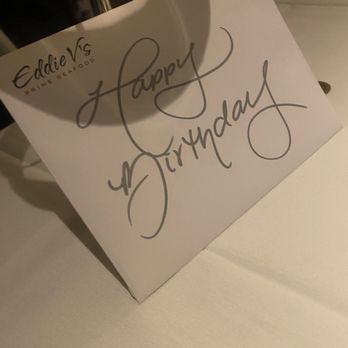 Eddie V's
PRIME SEAFOOD
Happy
Birthday